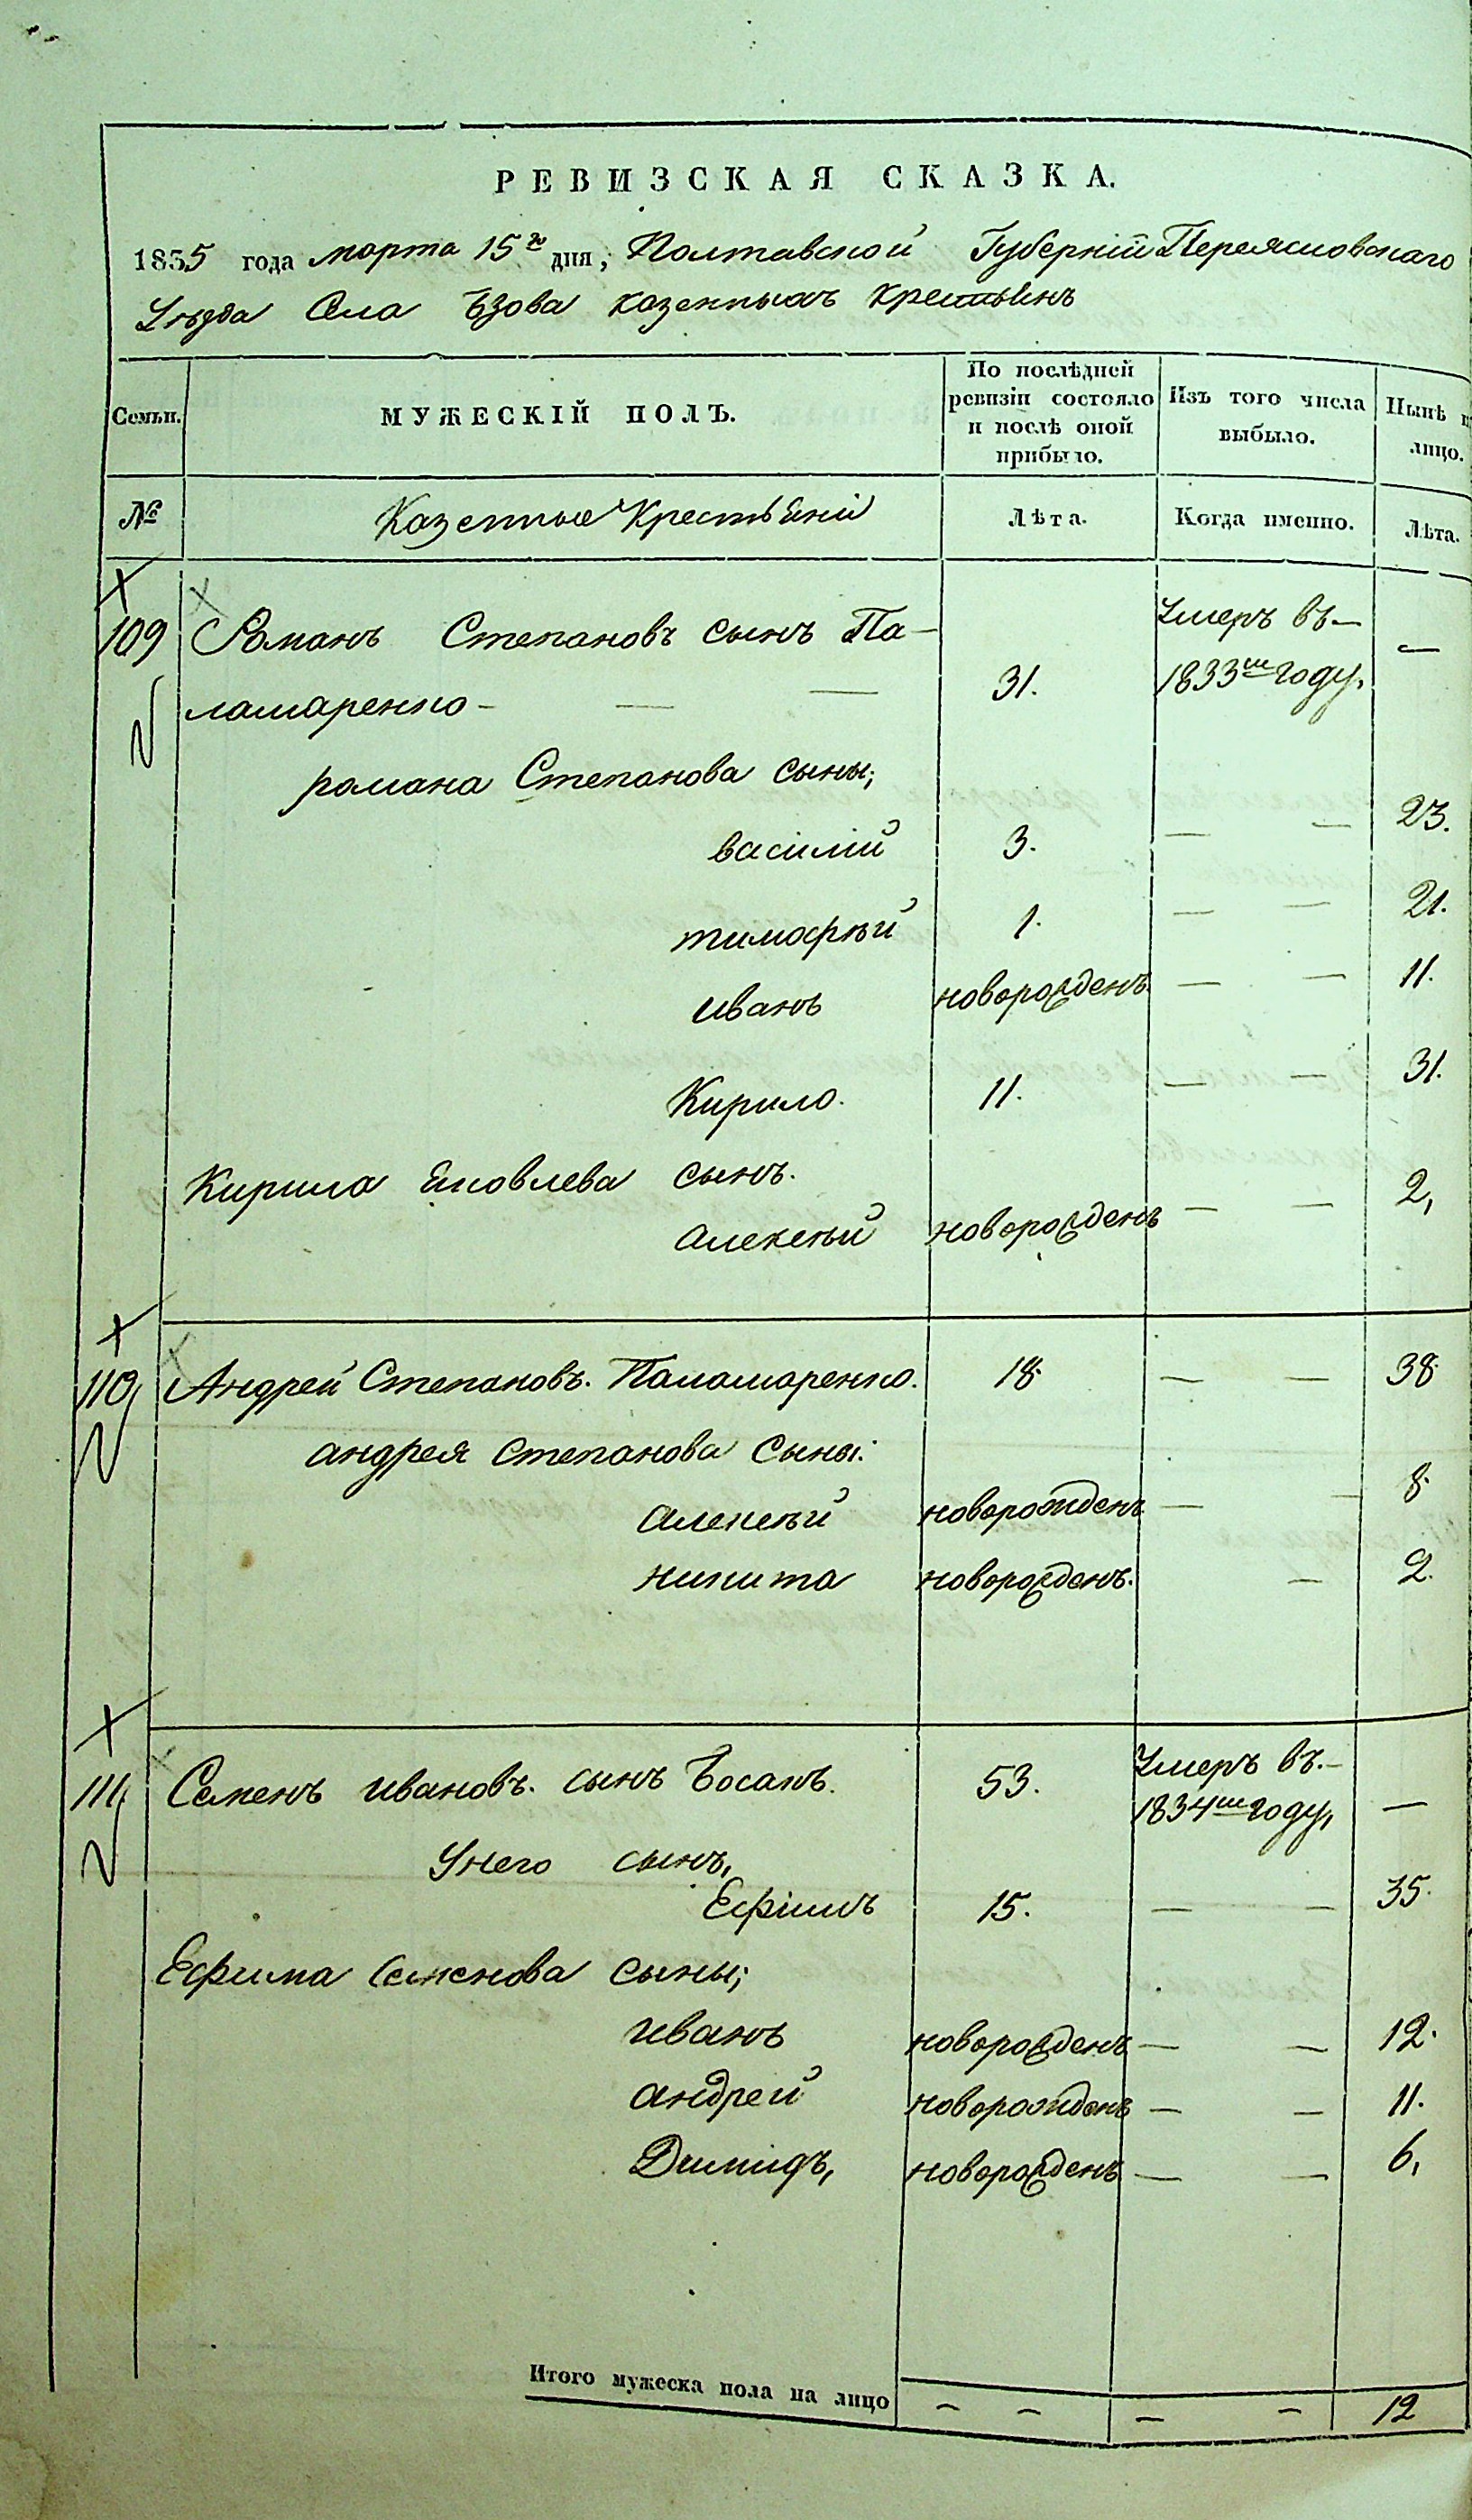 РЕВИЗСКАЯ СКАЗКА.
1835 года марта 15го дня, Полтавской Губерніи Переясловскаго
Уѣзда Села Ѣзова казенныхъ крестьянъ
Семьи. МУЖЕСКІЙ ПОЛЪ. По послѣдней ревизіи состояло и послѣ оной прибыло. Изъ того числа выбыло. Нынѣ н лицо.
№ Казенные Крестьяни Лѣта. Когда именно. Лѣта.
109 Романъ Степановъ сынъ Па-
ламаренко — — 31. Умеръ въ — 1833м году, —
романа Степанова сыны;
василий 3. — — 23.
тимофѣй 1. — — 21.
иванъ новорожденъ — — 11.
Кирило. 11. — — 31.
Кирила Яковлева сынъ.
алексѣй новорожденъ — — 2,
110, Андрей Степановъ. Паламаренко. 18. — — 38.
андрея степанова сыны:
алексѣй новорожденъ — — 8.
никита новорожденъ. — 2.
111, Семенъ ивановъ. сынъ Босакъ. 53. Умеръ въ.— 1834м году, —
Унего сынъ,
Ефімъ 15. — — 35.
Ефима Семенова сыны;
иванъ новорожденъ — — 12.
андрей новорожденъ — — 11.
Димидъ, новорожденъ — — 6,
Итого мужеска пола на лицо — — — — 12